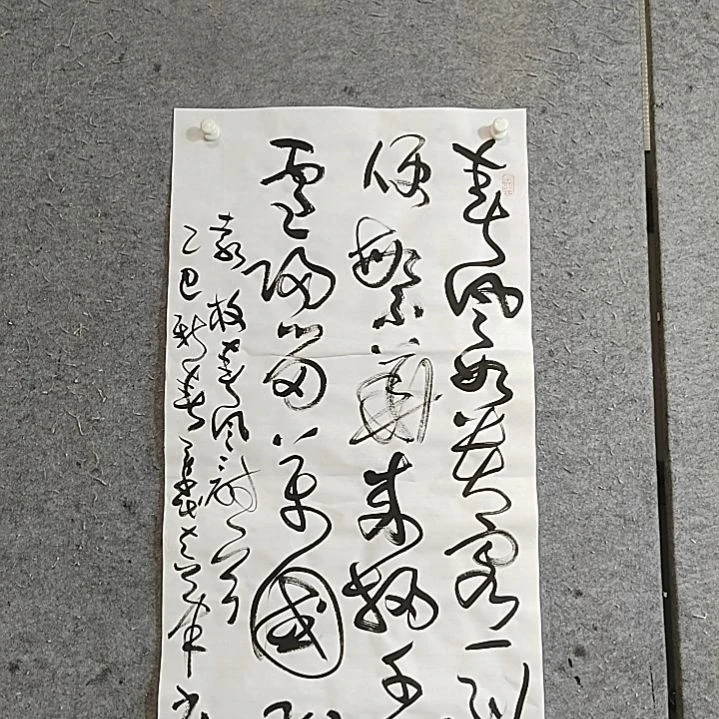 春風如貴客一到
便繁華来掃千
雪歸留萬國花
袁枚春風詩一首
乙巳新春